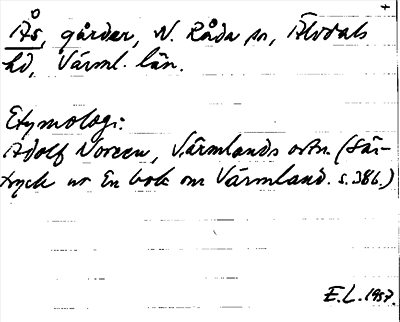 Ås, gårdar, N. Råda sn, Älvdals
hd, Värml. län.
Etymologi:
Adolf Noreen, Värmlands ortn. (Sär-
tryck ur En bok om Värmland. s. 386.)
E.L. 1957.